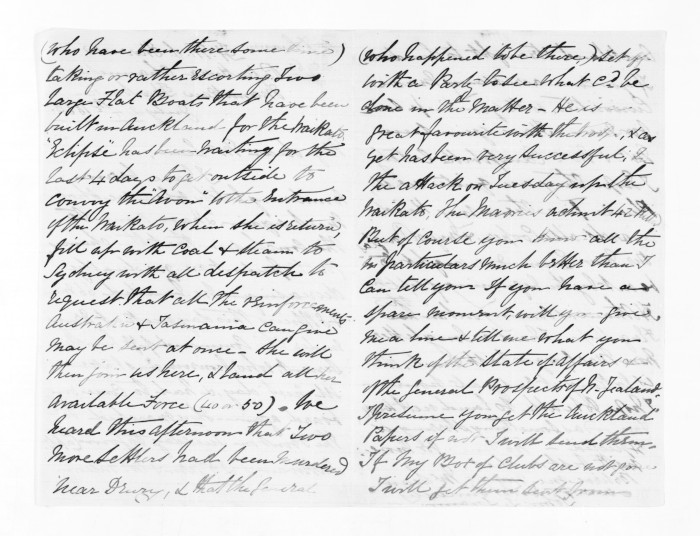 (who have been there some time)
taking or rather Escorting Two
large Flat Boats that have been
built in Auckland for the Waikato
"Eclipse" has been waiting for the
last 4 days to get outside to
convoy the "Avon" to the Entrance
of the Waikato, when she is return,
fill up with Coal & steam to
Sydney with all despatch to
request that all the reinforcements
Australia & Tasmania can give
may be sent at once - She will
then join us here, & land all her
available Force (40 or 50). We
heard this afternoon that Two
More Settlers had been Murdered
near Drury, & that the General
(who happened to be there,) set
with a Party to see what Cd. be
done in the Matter - He is
great favourite with the & as
yet has been very successful, In
the attack on Tuesday upon the
Waikato, The Maories admit
But of Course you know all the
particulars much better than I
Can tell you If you have a
spare moment, will you give
me a line & tell me what you
think of the State of affairs &
of the General Prospects of N. Zealand.
I presume you get the Auckland
Papers if not I will send them -
If My Box of Clubs are not gone
I will get them sent from